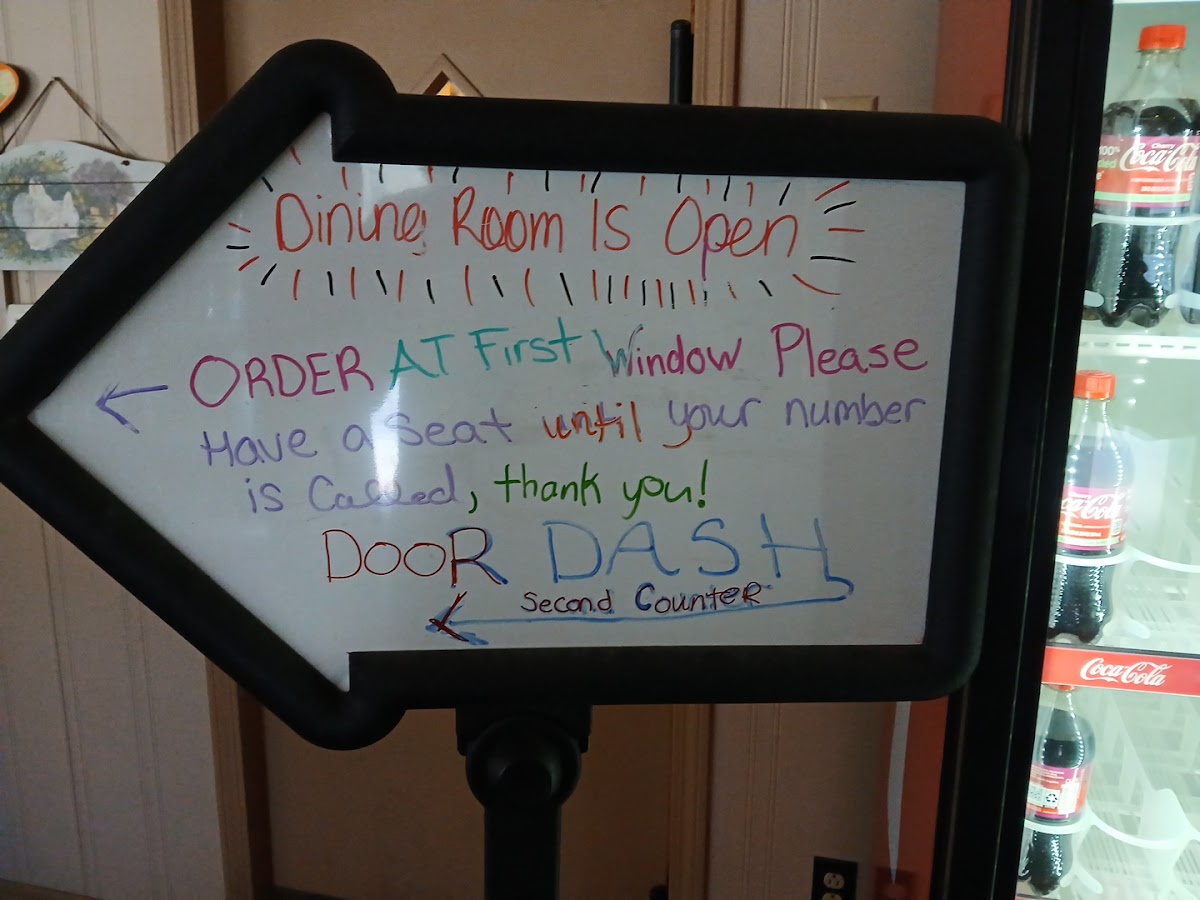 Dining Room Is Open
ORDER AT First Window Please
Have a Seat until your number
is Called, thank you!
DOOR DASH
Second Counter
Cherry
Coca-Cola
Coca-Cola
Coca-Cola